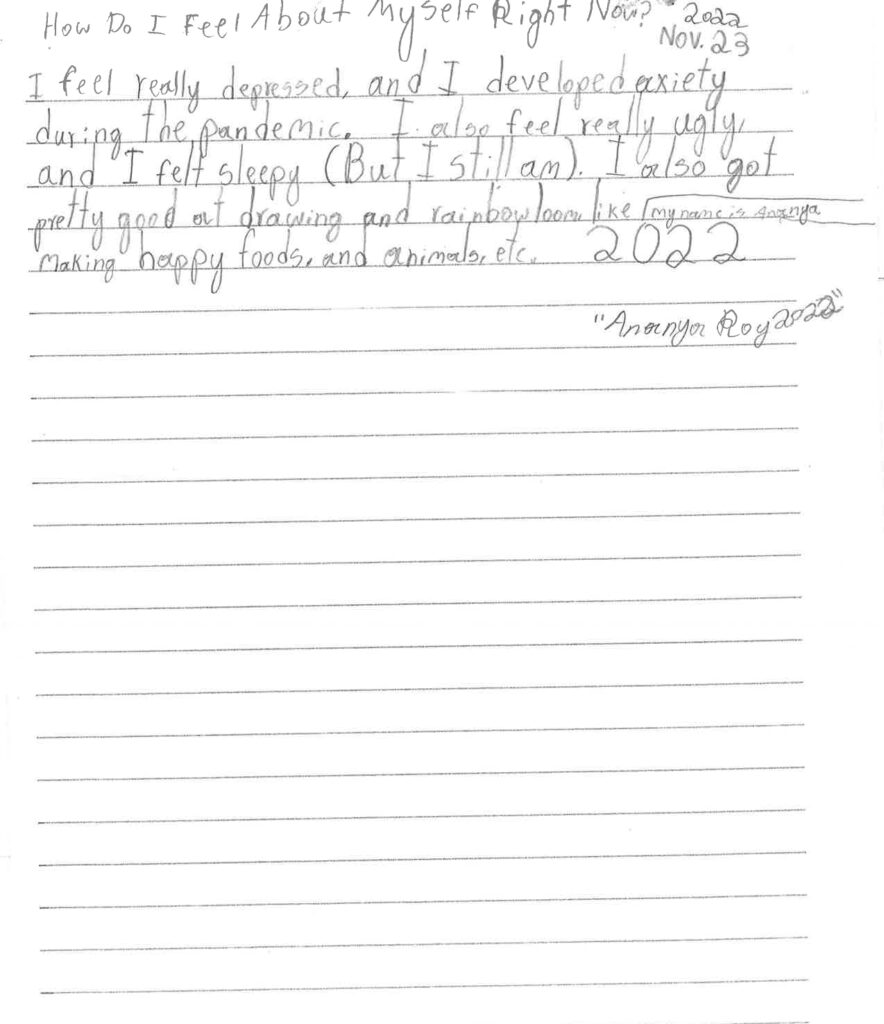 How Do I Feel About Myself Right Now? 2022
Nov. 23
I feel really depressed, and I developed axiety
during the pandemic. I also feel really ugly,
and I felt sleepy (But I still am). I also got
pretty good at drawing and rainbow loom like my name is Ananya
Making happy foods, and animals, etc. 2022
"Ananya Roy 2022"